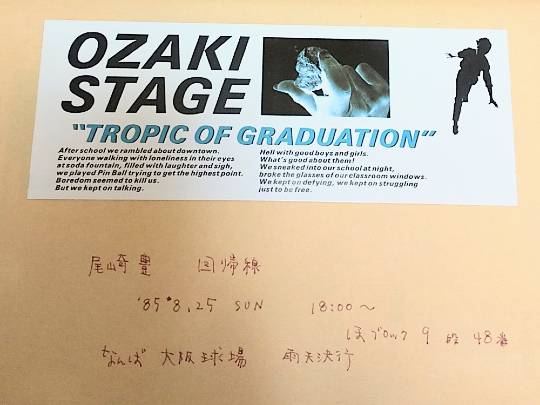 OZAKI
STAGE
“TROPIC OF GRADUATION”
After school we rambled about downtown.
Everyone walking with loneliness in their eyes
at soda fountain, filled with laughter and sigh,
we played Pin Ball trying to get the highest point.
Boredom seemed to kill us.
But we kept on talking.
Hell with good boys and girls.
What's good about them!
We sneaked into our school at night,
broke the glasses of our classroom windows.
We kept on defying, we kept on struggling
just to be free.
尾崎豊 回帰線
'85*8.25 SUN 18:00〜
ほブロック 9段 48番
なんば 大阪球場 雨天決行